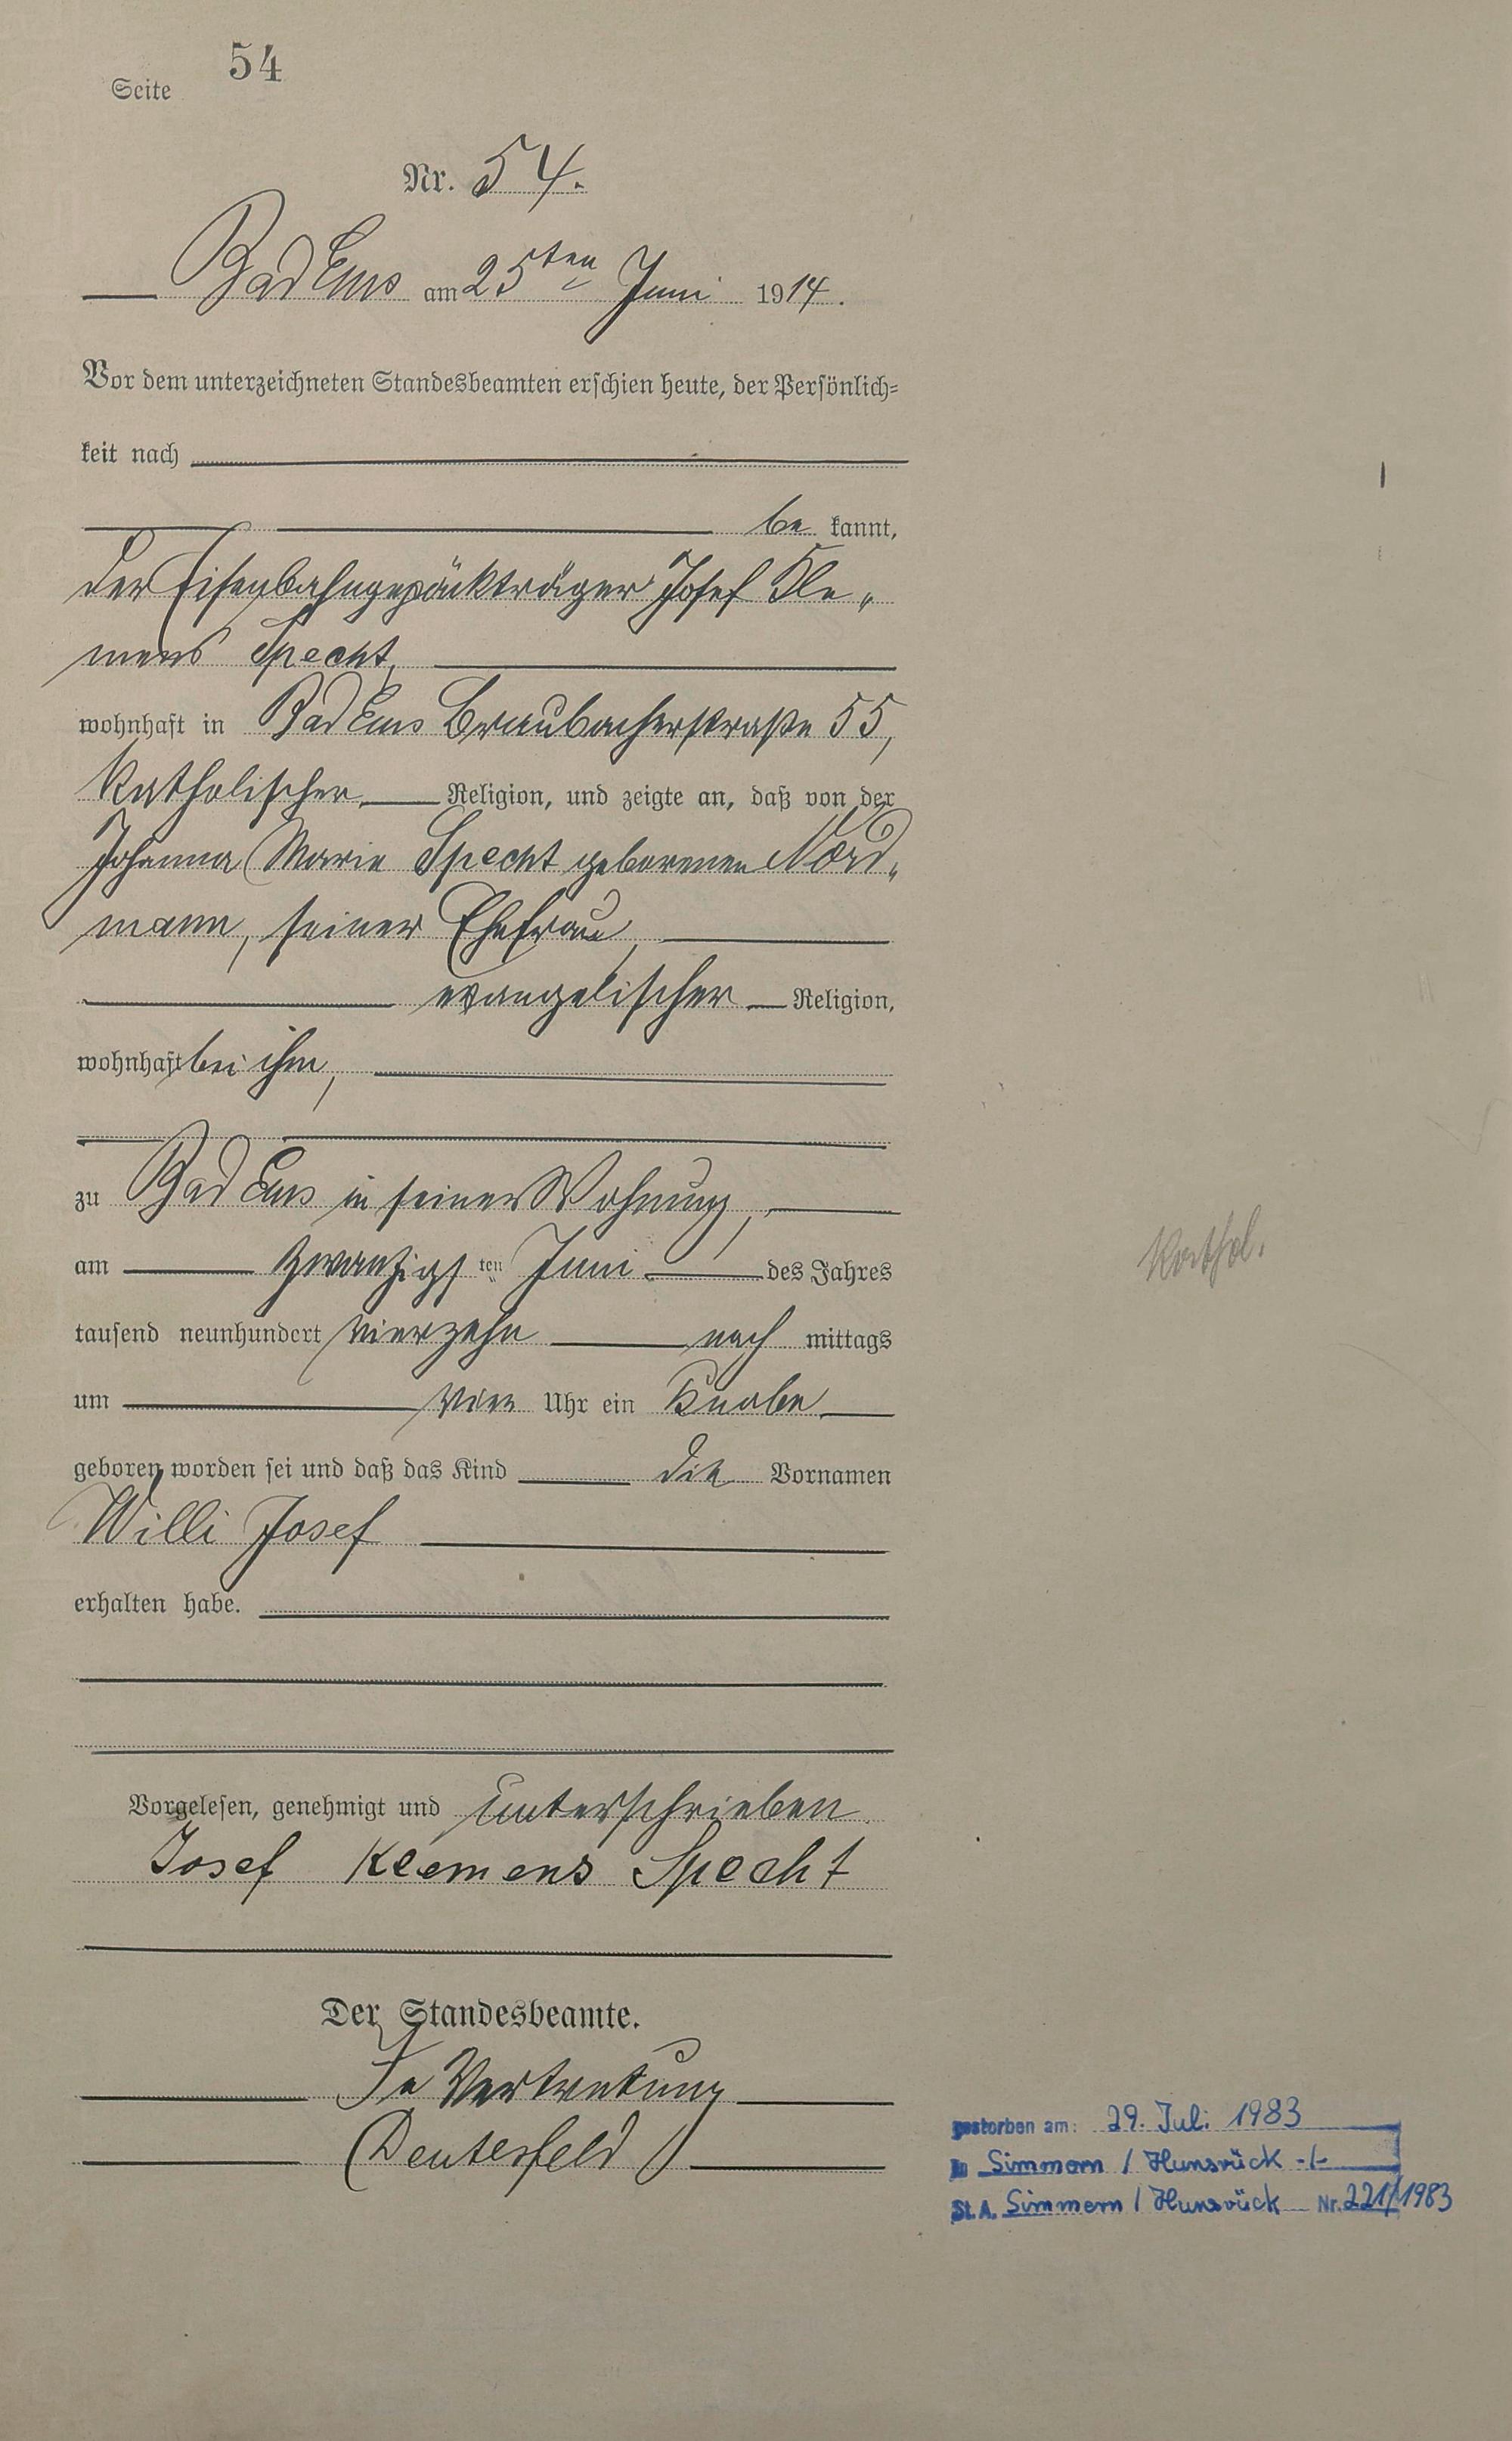 Seite 54
Nr. 54.
Bad Ems am 25ten Juni 1914.
Vor dem unterzeichneten Standesbeamten erschien heute, der Persönlich=
keit nach
be kannt,
der Eisenbahngepäckträger Josef Kle„
mens Specht,
wohnhaft in Bad Ems Braubacherstraße 55,
katholischer Religion, und zeigte an, daß von der
Johanna Marie Specht geborenen Nord„
mann, seiner Ehefrau,
evangelischer Religion,
wohnhaft bei ihm,
zu Bad Ems in seiner Wohnung,
am zwanzigsten Juni des Jahres
tausend neunhundert vierzehn nach mittags
um vier Uhr ein Knabe
geboren worden sei und daß das Kind die Vornamen
Willi Josef
erhalten habe.
Vorgelesen, genehmigt und unterschrieben.
Josef Klemens Specht
Der Standesbeamte.
In Vertretung
Deuterfeld
kathol.
gestorben am: 29. Juli 1983
in Simmern / Hunsrück -/-
St. A. Simmern / Hunsrück Nr. 221/1983